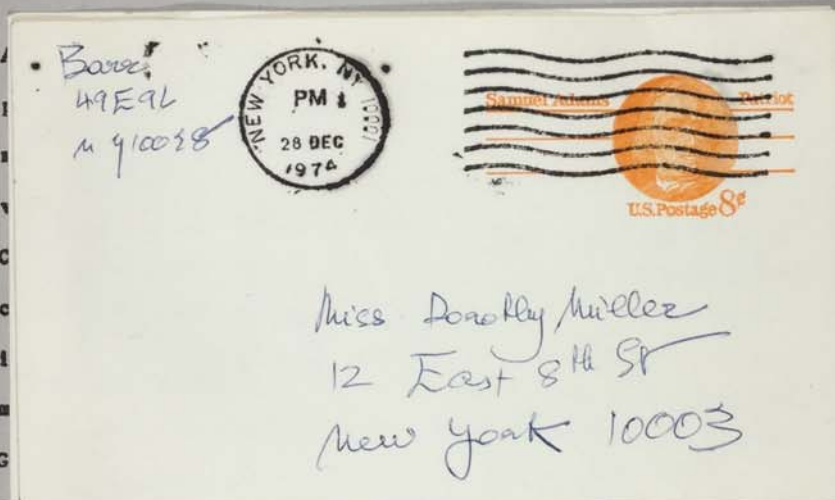 Barr
49E96
N Y 10028
NEW YORK, NY 10001
PM
28 DEC
1974
Samuel Adams Patriot
U.S. Postage 8¢
Miss Dorothy Miller
12 East 8th St
New York 10003